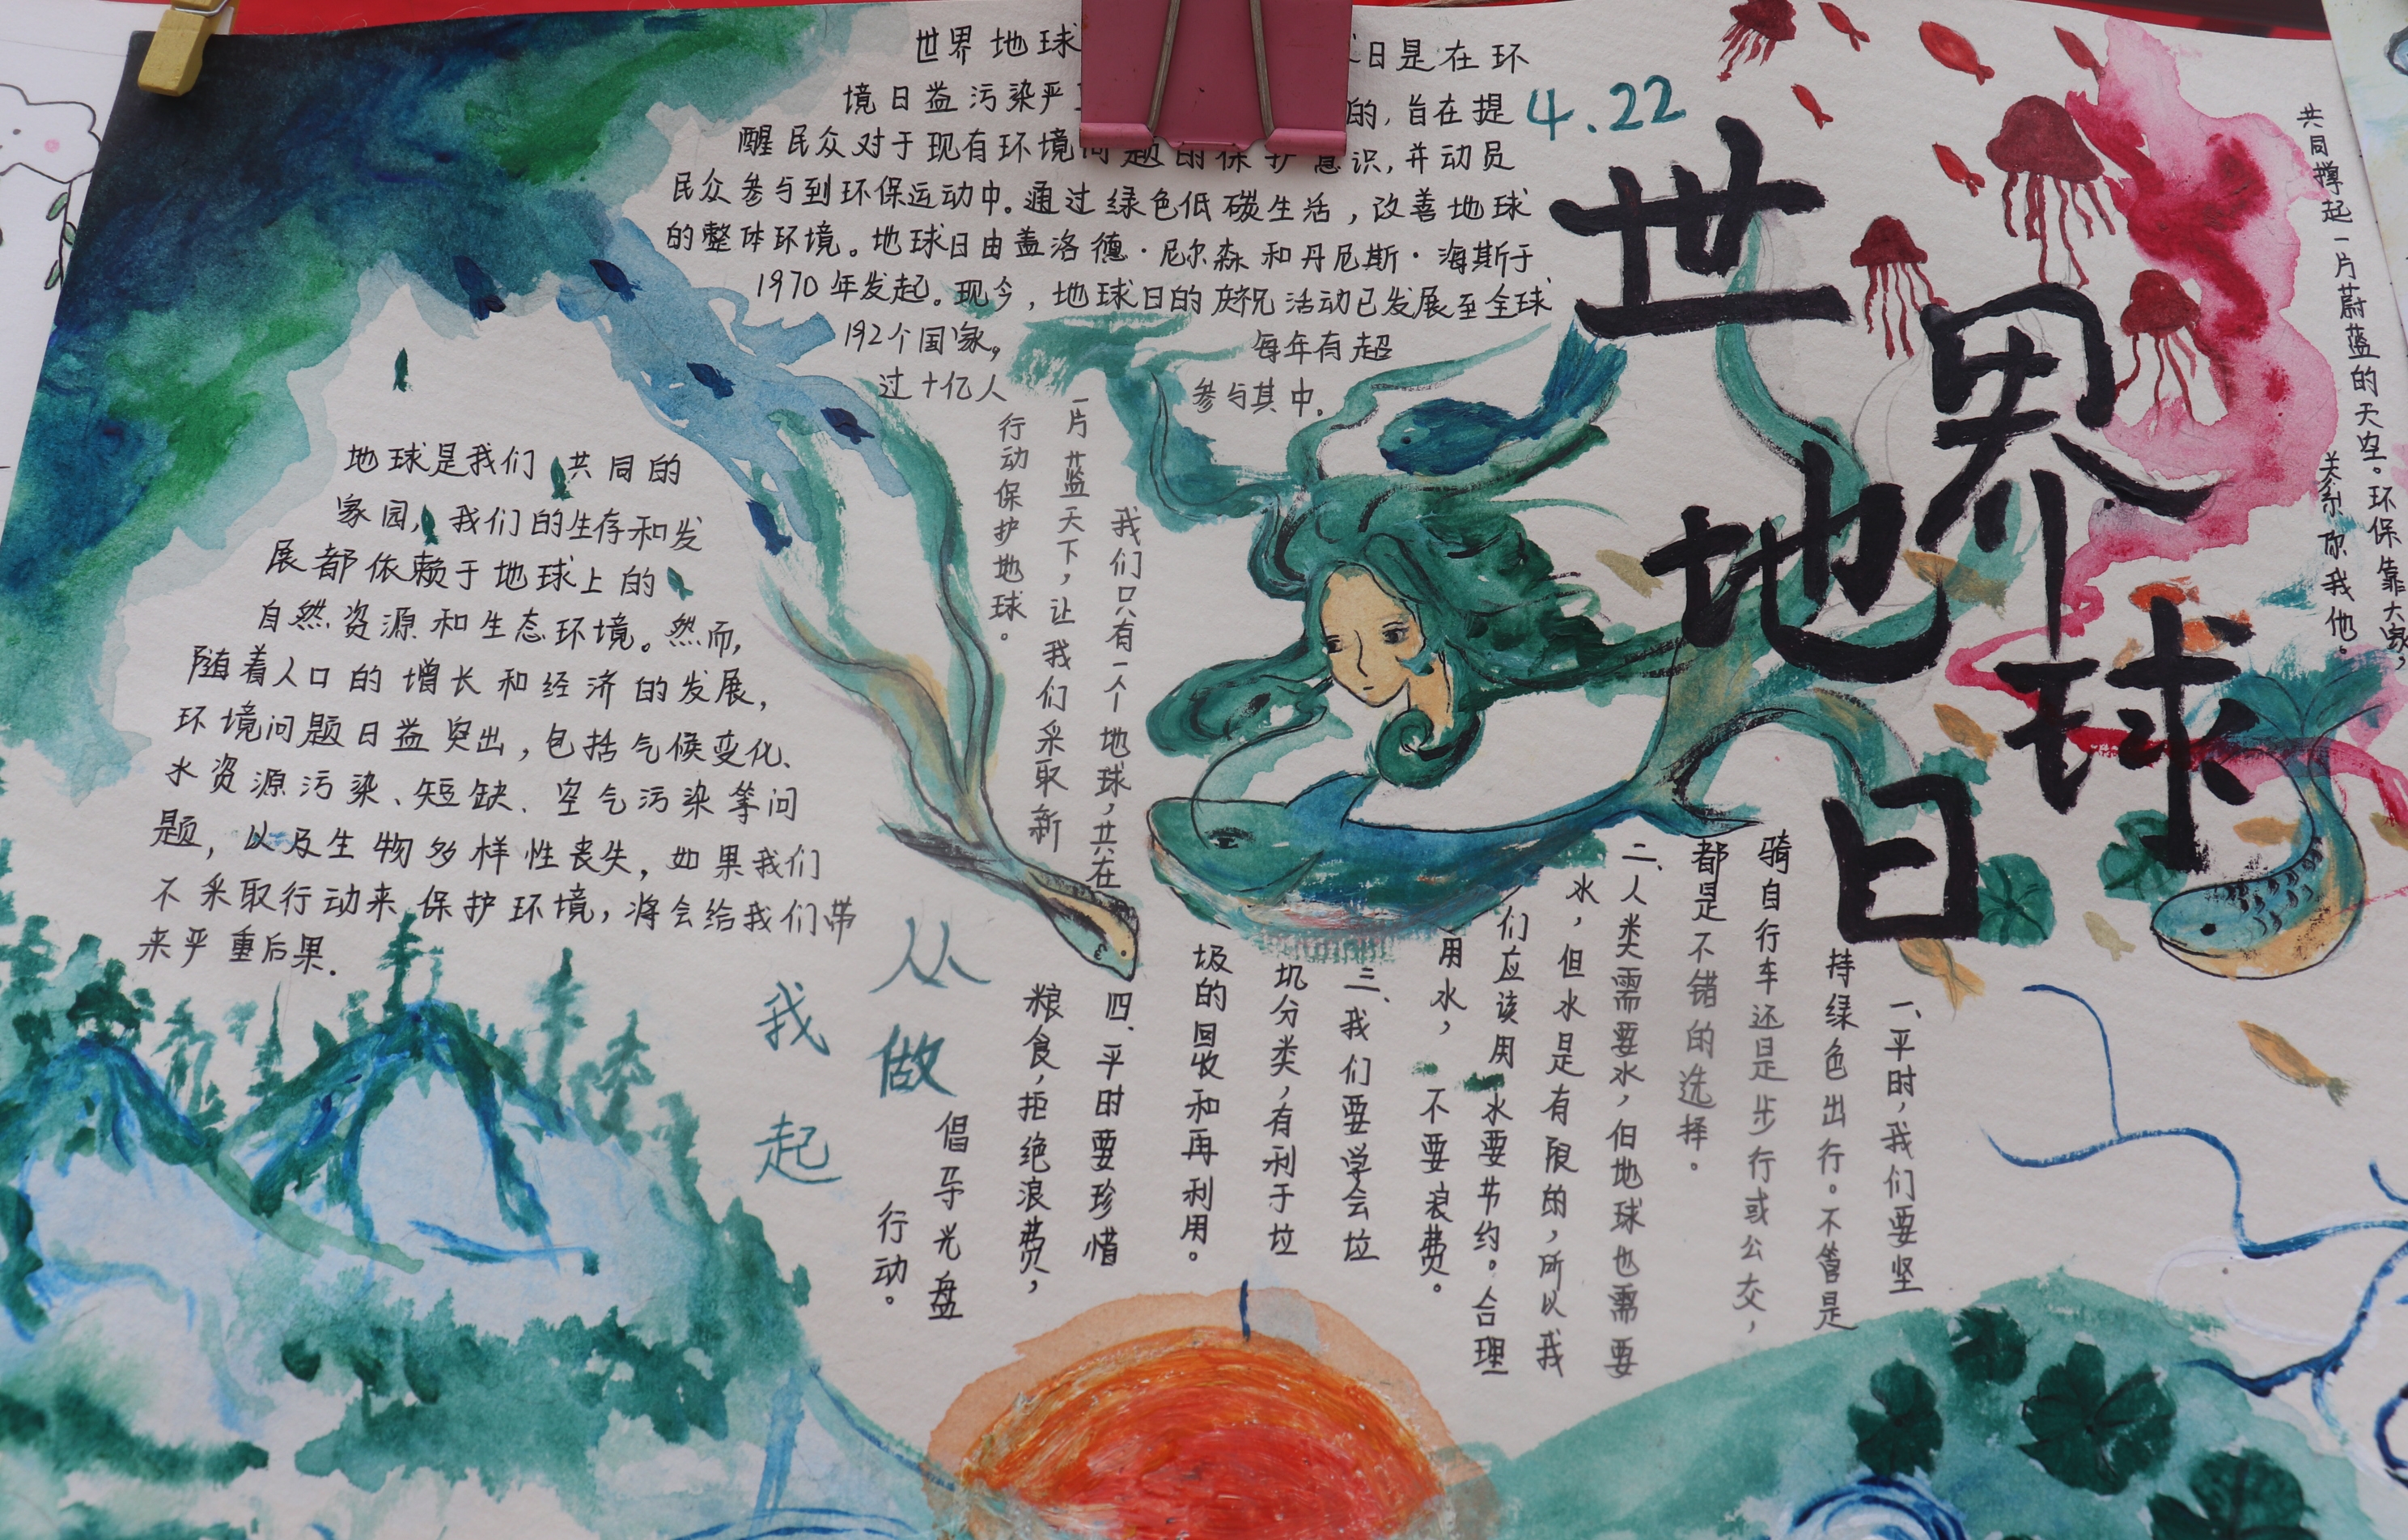 4.22
世界地球日
世界地球 日是在环
境日益污染严 的，旨在提
醒民众对于现有环境问题的保护意识，并动员
民众参与到环保运动中。通过绿色低碳生活，改善地球
的整体环境。地球日由盖洛德·尼尔森和丹尼斯·海斯于
1970年发起。现今，地球日的庆祝活动已发展至全球
192个国家。 每年有超
过十亿人 参与其中。
地球是我们共同的
家园，我们的生存和发
展都依赖于地球上的
自然资源和生态环境。然而，
随着人口的增长和经济的发展，
环境问题日益突出，包括气候变化、
水资源污染、短缺、空气污染等问
题，以及生物多样性丧失，如果我们
不采取行动来保护环境，将会给我们带
来严重后果.
共同撑起一片蔚蓝的天空。环保靠大家，
关系你我他。
我们只有一个地球，共在
一片蓝天下，让我们采取新
行动保护地球。
从我
做起
一、平时，我们要坚
持绿色出行。不管是
骑自行车还是步行或公交，
都是不错的选择。
二、人类需要水，但地球也需要
水，但水是有限的，所以我
们应该用水要节约。合理
用水，不要浪费。
三、我们要学会垃
圾分类，有利于垃
圾的回收和再利用。
四、平时要珍惜
粮食，拒绝浪费，
倡导光盘
行动。